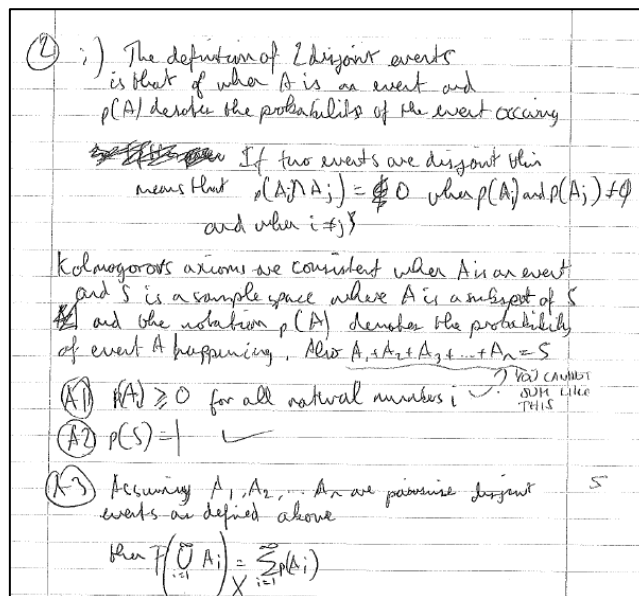 2 i) The definition of 2 disjoint events
is that of when A is an event and
p(A) denotes the probability of the event occuring
If two events are disjoint this
means that p(Ai∩Aj) = 0 when p(Ai) and p(Aj) ≠ φ
and when i≠j
Kolmogorovs axioms are consistent when A is an event
and S is a sample space where A is a subset of S
and the notation p(A) denotes the probability
of event A happening. Also A1+A2+A3+...+An=S
? YOU CANNOT
SUM LIKE
THIS
A1 p(Ai) ≥ 0 for all natural numbers i ✓
A2 p(S)=1 ✓
A3 Assuming A1, A2, ... An are pairwise disjoint 5
events as defined above
then P(∞⋃i=1 Ai) = ∞∑i=1 p(Ai)
X